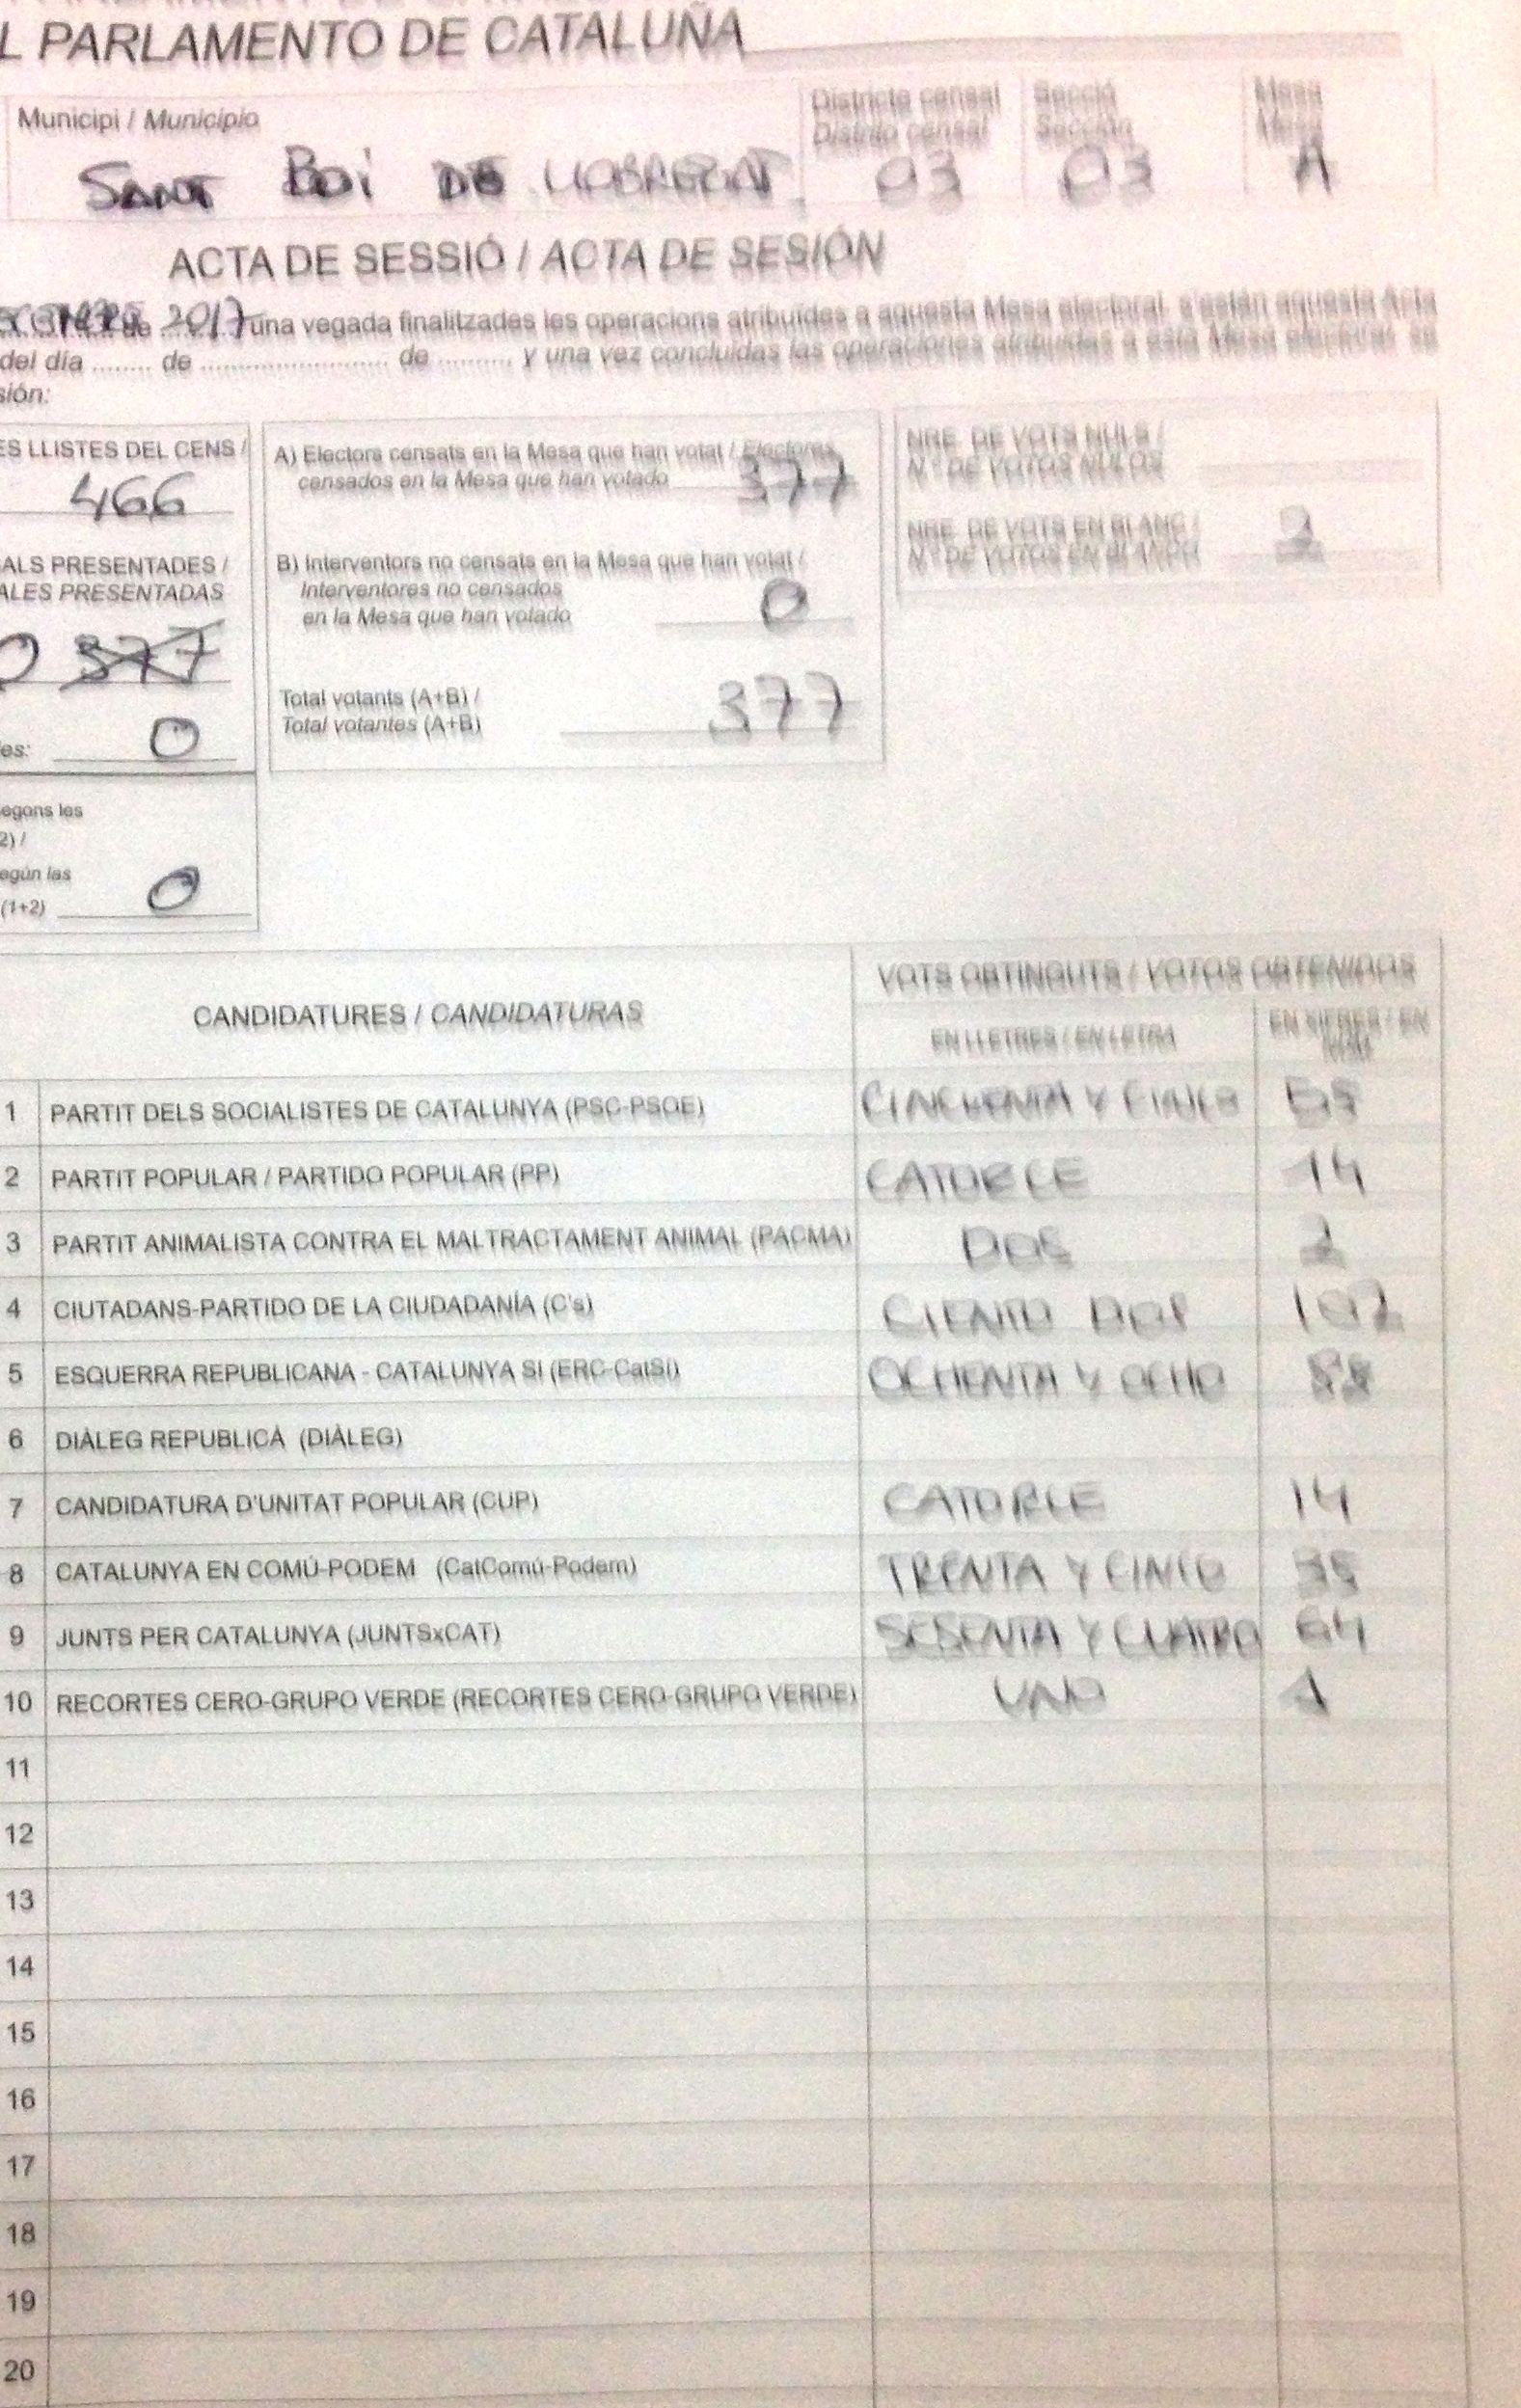 L PARLAMENTO DE CATALUÑA
Municipi / Municipio
SANT BOI DE LLOBREGAT
Districte censal
Distrito censal
03
Secció
Sección
03
Mesa
Mesa
A
ACTA DE SESSIÓ / ACTA DE SESIÓN
de 2017 una vegada finalitzades les operacions atribuïdes a aquesta Mesa electoral
del día ....... de .................... de ....... y una vez concluidas las operaciones atribuidas a esta Mesa electoral se
sión:
ES LLISTES DEL CENS /
466
ALS PRESENTADES /
ALES PRESENTADAS
0 377
es:
0
egons los
2) /
egún las
(1+2)
0
A) Electors censats en la Mesa que han votat / Electores
censados en la Mesa que han votado
377
B) Interventors no censats en la Mesa que han votat /
Interventores no censados
en la Mesa que han votado
0
Total votants (A+B) /
Total votantes (A+B)
377
NRE. DE VOTS NULS /
N.º DE VOTOS NULOS
NRE. DE VOTS EN BLANC /
N.º DE VOTOS EN BLANCO
2
CANDIDATURES / CANDIDATURAS
VOTS OBTINGUTS / VOTOS OBTENIDOS
EN LLETRES / EN LETRA
1 PARTIT DELS SOCIALISTES DE CATALUNYA (PSC-PSOE) CINCUENTA Y CINCO 55
2 PARTIT POPULAR / PARTIDO POPULAR (PP) CATORCE 14
3 PARTIT ANIMALISTA CONTRA EL MALTRACTAMENT ANIMAL (PACMA) DOS 2
4 CIUTADANS-PARTIDO DE LA CIUDADANÍA (C's) CIENTO DOS 102
5 ESQUERRA REPUBLICANA - CATALUNYA SÍ (ERC-CatSí) OCHENTA Y OCHO 88
6 DIÀLEG REPUBLICÀ (DIÀLEG)
7 CANDIDATURA D'UNITAT POPULAR (CUP) CATORCE 14
8 CATALUNYA EN COMÚ-PODEM (CatComú-Podem) TRENTA Y CINCO 35
9 JUNTS PER CATALUNYA (JUNTSxCAT) SESENTA Y CUATRO 64
10 RECORTES CERO-GRUPO VERDE (RECORTES CERO-GRUPO VERDE) UNO 1
11
12
13
14
15
16
17
18
19
20